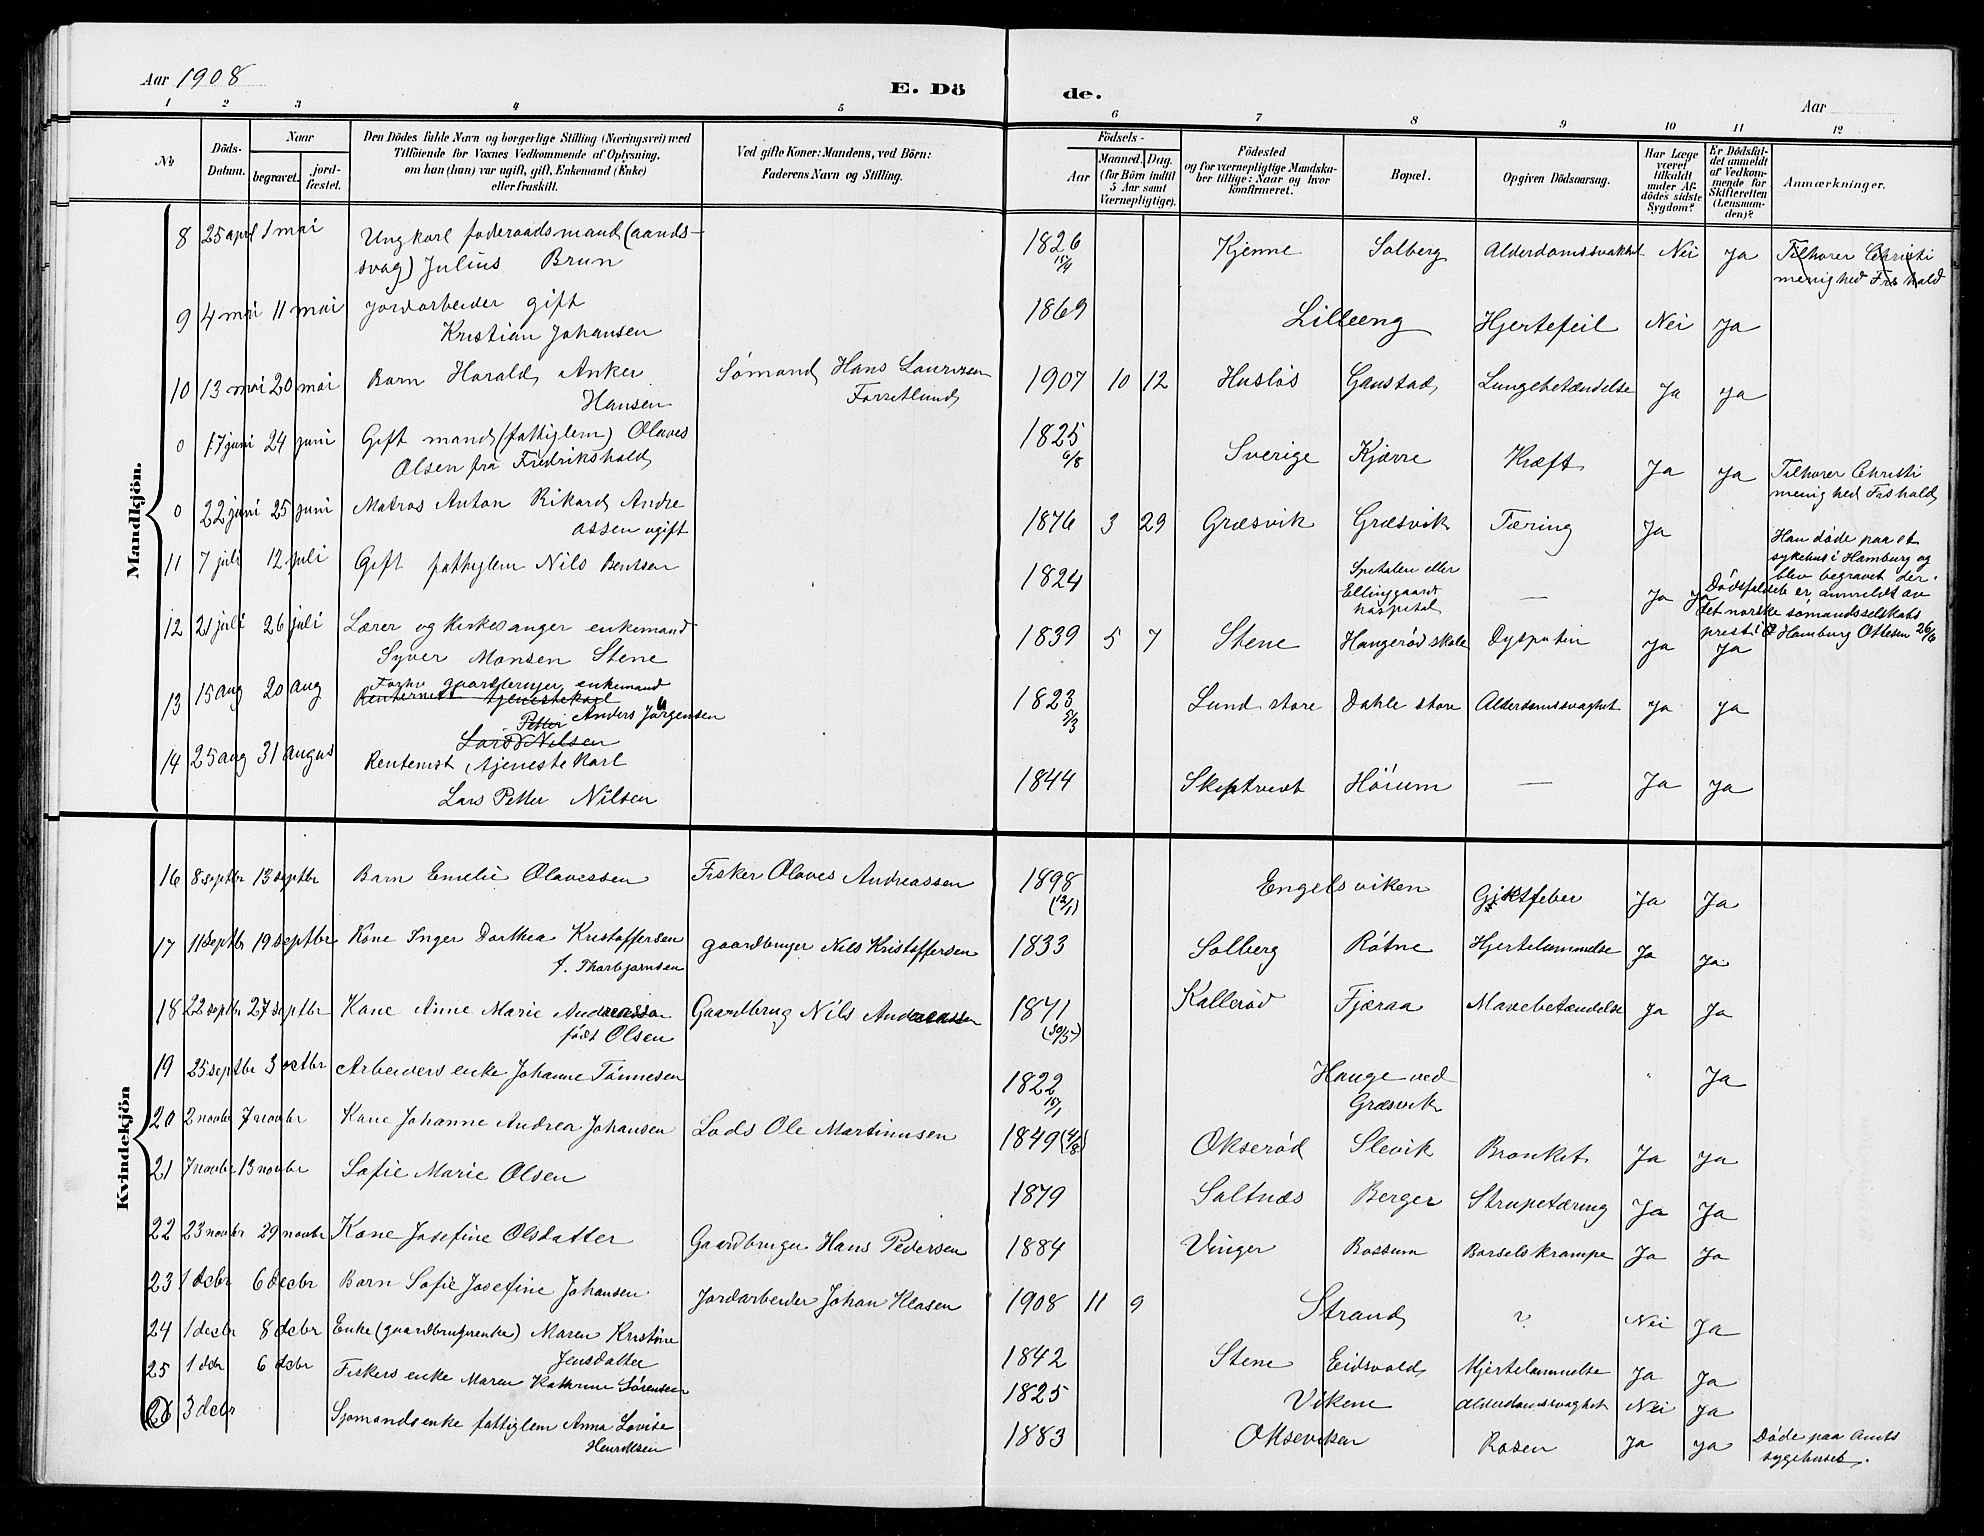 Aar 1908
E. Dö
de.
Aar
1 2 3 4 5 6 7 8 9 10 11 12
No
Döds-Datum.
Naar
begravet.
jord-fæstet.
Den Dödes fulde Navn og borgerlige Stilling (Næringsvei) med
Tilföiende for Voxnes Vedkommende af Oplysning,
om han (hun) var ugift, gift, Enkemand (Enke)
eller fraskilt.
Ved gifte Koner: Mandens, ved Börn:
Faderens Navn og Stilling.
Födsels-
Aar
Maaned. Dag.
(for Börn indtil
5 Aar samt
Værnepligtige).
Födested
og for værnepligtige Mandska-
ber tillige: Naar og hvor
konfirmeret.
Bopæl.
Opgiven Dödsaarsag.
Har Læge
været
tilkaldt
under Af-
dödes sidste
Sygdom?
Er Dödsfal-
det anmeldt
af Vedkom-
mende for
Skifteretten
(Lensman-
den)?
Anmærkninger.
Mandkjön.
8 25 april 1 mai Ungkarl föderaadsmand (aands-
svag) Julius Brun 1826 15/4 Kjenne Solberg Alderdomssvakhet Nei Ja Tilhører Christi
menighed Frs hald
9 4 mai 11 mai Jordarbeider gift
Kristian Johansen 1869 Lilleeng Hjertefeil Nei Ja
10 13 mai 20 mai Barn Harald Anker
Hansen Sømand Hans Laurizen
Forsetlund 1907 10 12 Husløs Gaustad Lungebetændelse Ja Ja
0 17 juni 24 juni Gift mand (fattiglem) Olaves
Olsen fra Fredrikshald 1825 6/8 Sverige Kjærre Kræft Ja Ja Tilhører Christi
menighed Frshald
0 22 juni 25 juni Matros Anton Rikard Andre
assen ugift 1876 3 29 Græsvik Græsvik Tæring Ja Han døde paa et
sykehus i Hamburg og
blev begravet der.
Dødsfaldet er anmeldt av
det norske sømandsselskabs
prest i Hamburg Ottesen 26/6
11 7 juli 12 juli Gift fattiglem Nils Bentsen 1824 Spetalen eller
Ellinggaard
hospital — Ja Ja
12 21 juli 26 juli Lærer og kirkesanger enkemand
Syver Monsen Stene 1839 5 7 Stene Haugerød skole Dysputin Ja Ja
13 15 aug 20 aug Forhv gaardbruger enkemand
Rentenist tjenestekarl
Petter Anders Jørgensen
Lars Nilsen 1823 5/3 Lund store Dahle store Alderdomssvaghet Ja Ja
14 25 aug 31 augus Rentenist, tjenestekarl
Lars Petter Nilsen 1844 Skiptvedt Hörum — Ja Ja
Kvindekjön
16 8 septbr 13 septbr Barn Emelie Olavessen Fisker Olaves Andreassen 1898 (12/1) Engelsviken Giktfeber Ja Ja
17 11 septbr 19 septbr Kone Inger Dorthea Kristoffersen
f. Thorbjørnsen gaardbruger Nils Kristoffersen 1833 Solberg Røtne Hjertelammelse Ja Ja
18 22 septbr 27 septbr Kone Anne Marie Andreassen
født Olsen Gaardbrug Nils Andreassen 1871 (30/5) Kallerød Fjæraa Mavebetændelse Ja Ja
19 25 septbr 3 octbr Arbeiders enke Johanne Tönnesen 1822 15/1 Hauge ved
Græsvik " Ja
20 2 novbr 7 novbr Kone Johanne Andrea Johansen Lods Ole Martinusen 1849 (4/8) Okserød Slevik Bronket Ja Ja
21 7 novbr 13 novbr Sofie Marie Olsen 1879 Saltnæs Berger Strupetæring Ja Ja
22 23 novbr 29 novbr Kone Josefine Olsdatter Gaardbruger Hans Pedersen 1884 Vinger Bossum Barselskrampe Ja Ja
23 1 decbr 6 decbr Barn Sofie Josefine Johansen Jordarbeider Johan Klasen 1908 11 9 Strand ? Nei Ja
24 1 decbr 8 decbr Enke (gaardbrugerenke) Maren Kristine
Jensdatter 1842 Stene Eidsvold Hjertelammelse Ja Ja
25 1 dcbr 6 dcbr Fiskers enke Maren Kathrine Sörensen 1825 Vikene Alderdomssvaghet Nei Ja
26 3 decbr Sjømandsenke fattiglem Anna Lovise
Henriksen 1883 Okseviken Rosen Ja Ja Døde paa Amts
sygehuset.